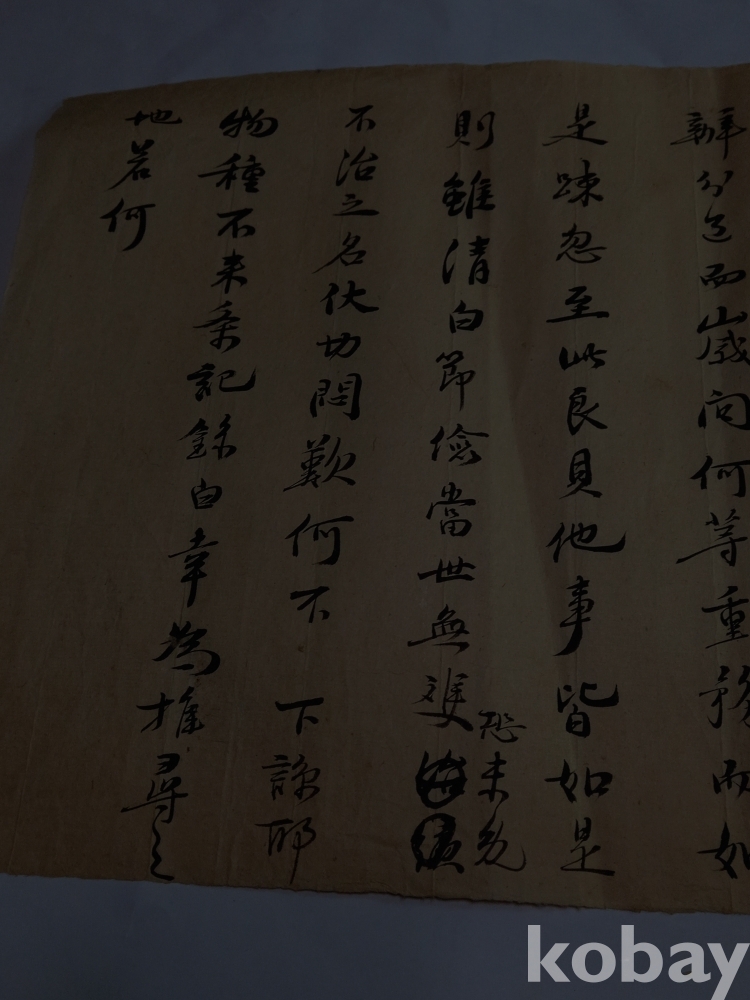 辦分之而山感向何等重務而如
是疎忽至此良貝他事皆如是
則雖清白節儉當世無雙恐未免
不治之名伏切悶歎何不 下諒耶
物種不來条記錄白幸為推尋之
地若何
kobay